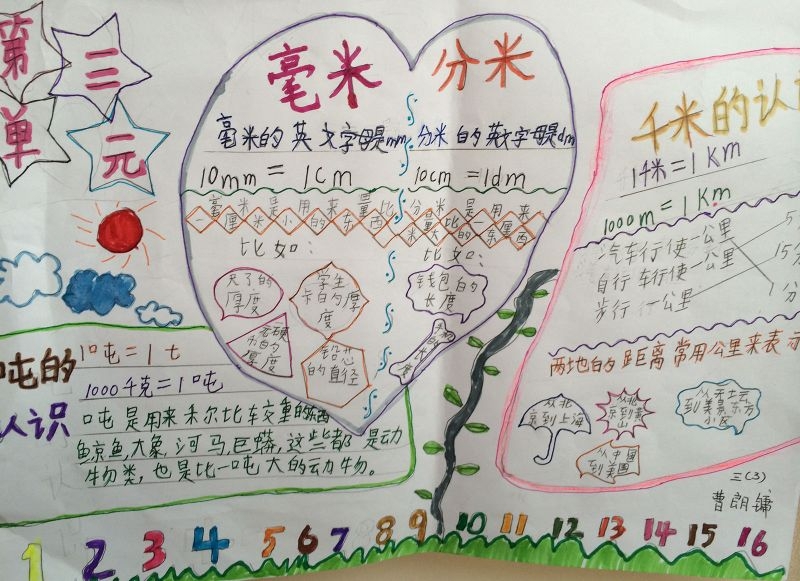 第三
单元
毫米
毫米的英文字母是mm
10mm = 1cm
毫米是用来量比
一厘米小的东西
比如：
尺子的
厚度
学生
卡的厚
度
硬
币的
厚度
铅芯
的直径
分米
分米的英文字母是dm
10cm = 1dm
分米是用来
量比一厘
米大的东西
比如：
钱包的
长度
千米的认
1千米=1 Km
1000m = 1 Km
汽车行使一公里
自行车行使一公里
步行一公里
5
15分
1分
两地的距离常用公里来表示
从北
京到上海
从北
京到黄
山
从中国
到美国
到美景东方
小区
三(3)
曹朗镛
吨的
认识
1吨=1t
1000千克=1吨
吨是用来称比较重的东西
鲸鱼,大象,河马,巨蟒,这些都是动
物类,也是比一吨大的动物。
1 2 3 4 5 6 7 8 9 10 11 12 13 14 15 16